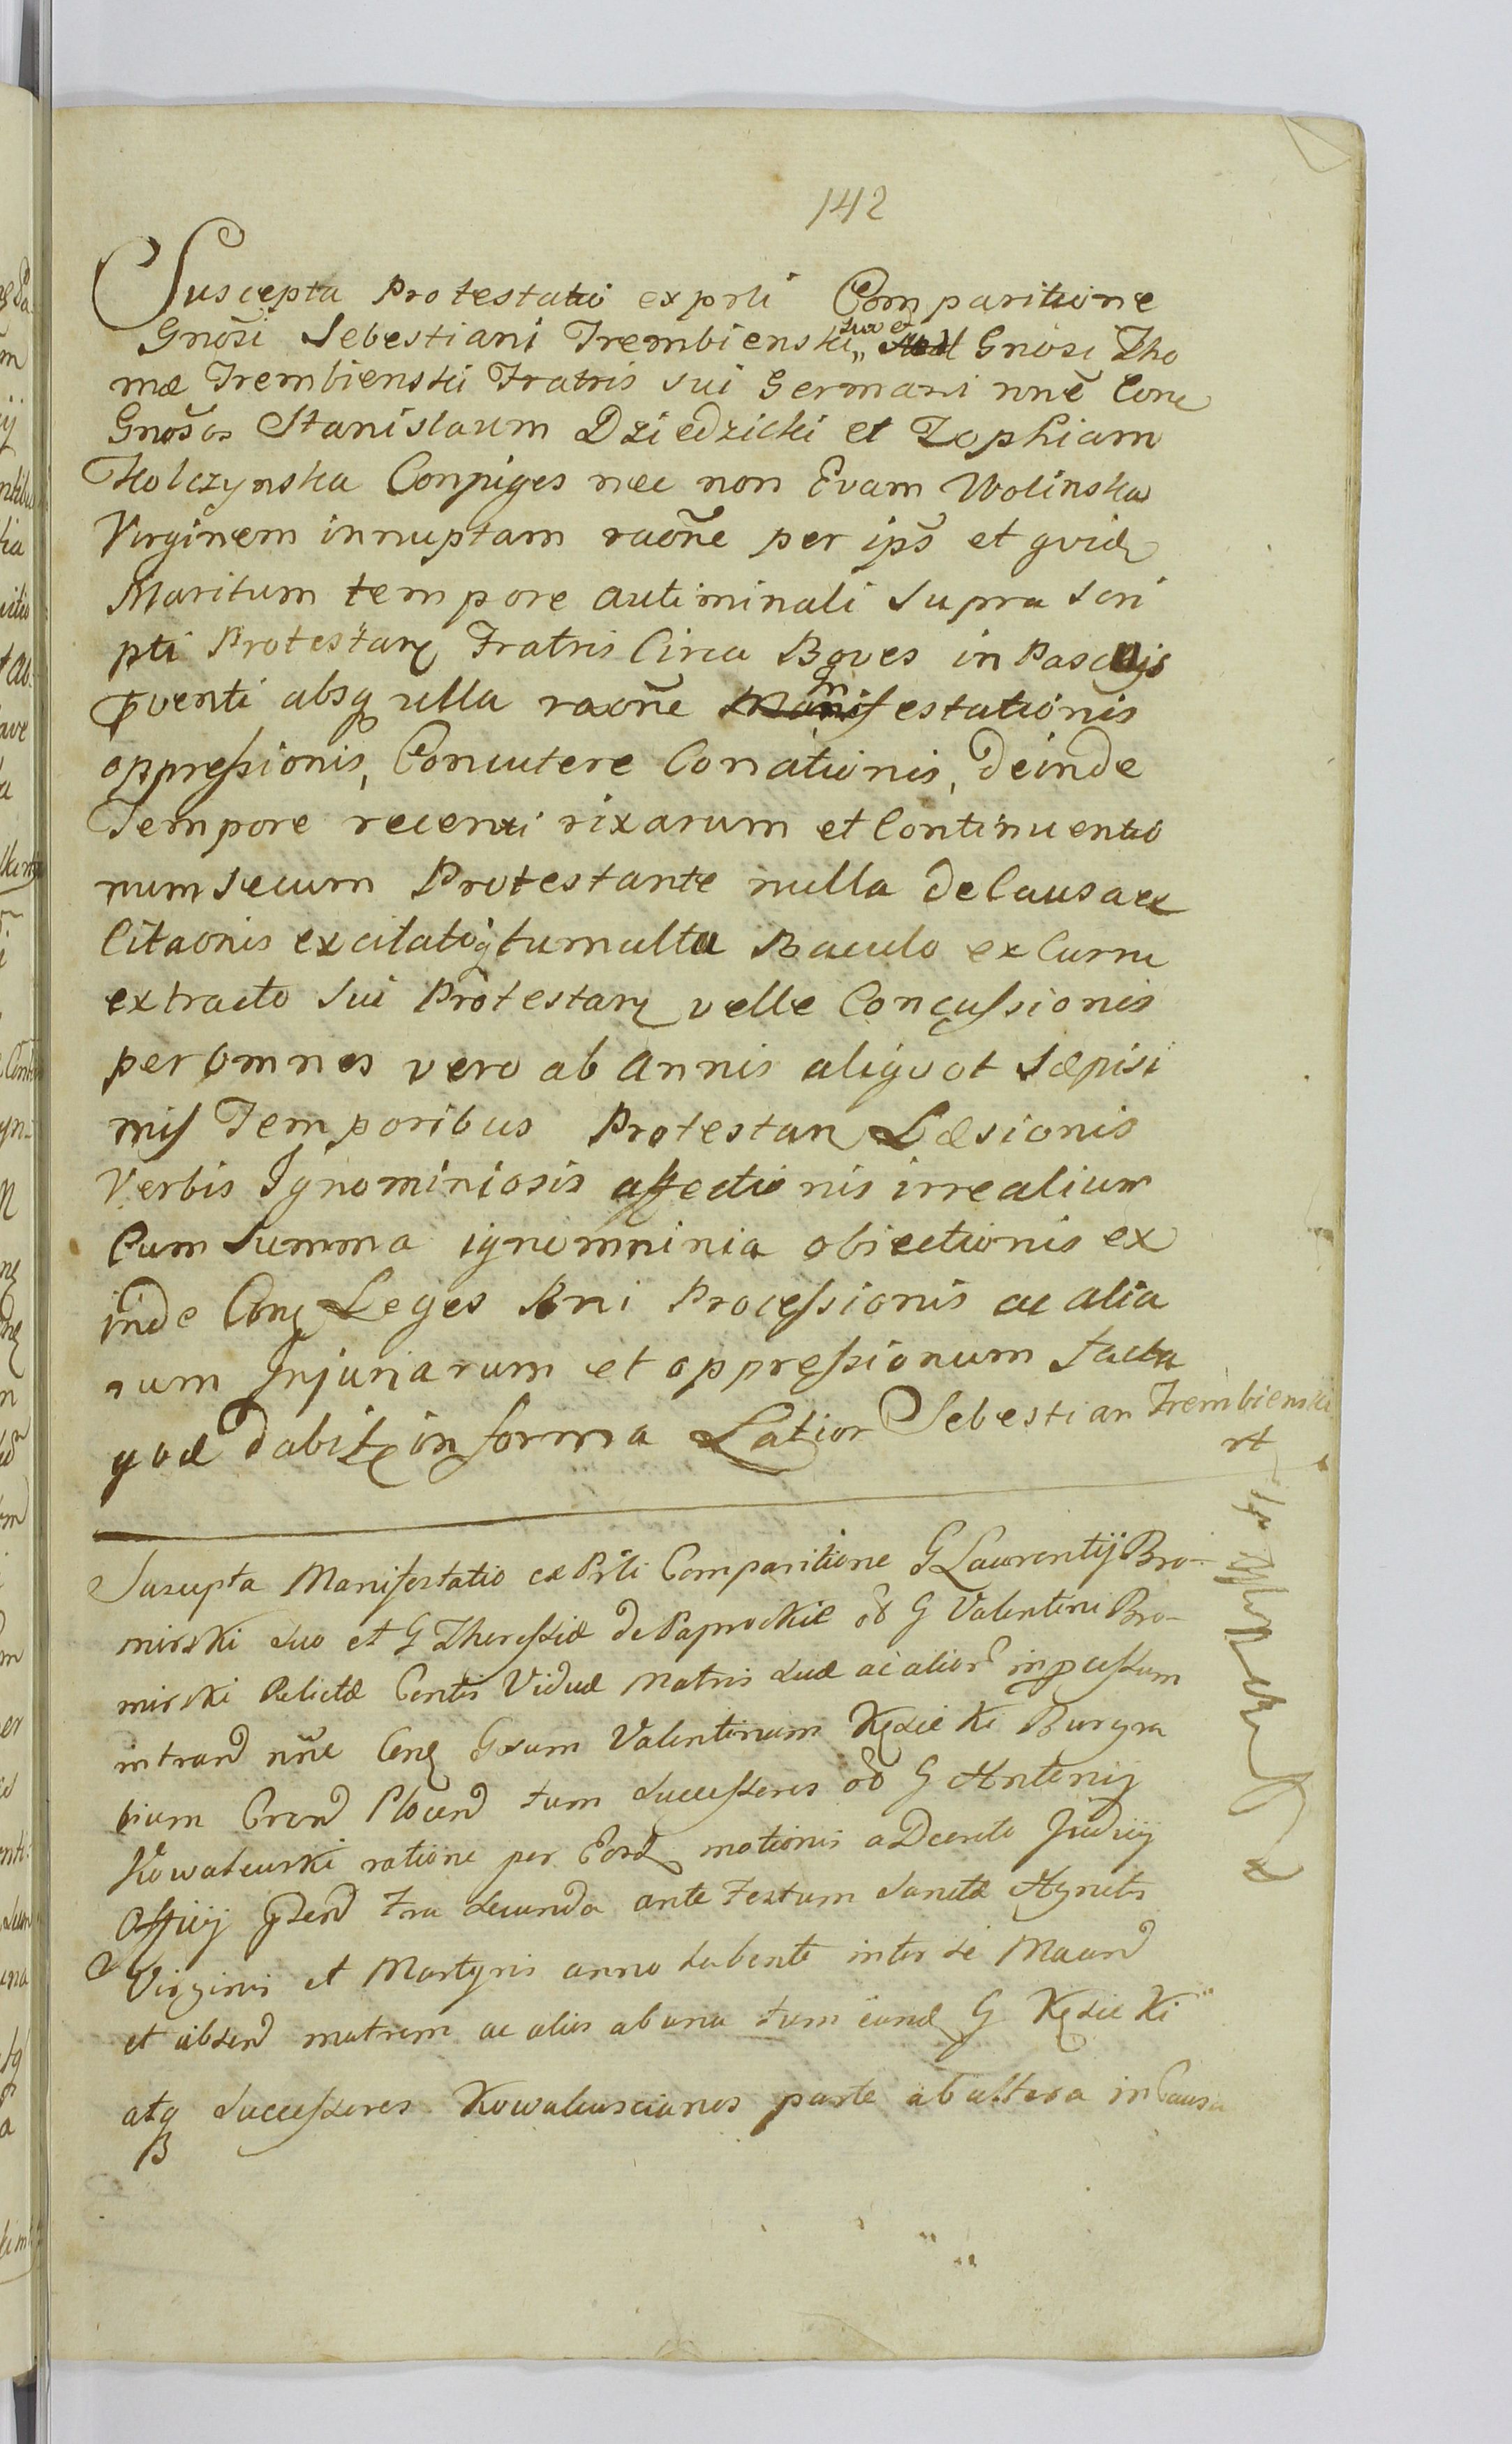 142
Suscepta Protestatio ex prti Comparitione
Gnosi Sebestiani Trembienski suo et Gnosi Tho
mæ Trembienski Fratris sui Germani nne Cone
Gnosos Stanislaum Dziedzicki et Zophiam
Kolczynska Conjuges nec non Evam Wolinska
Virginem innuptam raone per ips et quid
Maritum tempore autiminali supra scri
pti Protestan Fratris Circa Boves in Pascuis
venti absq ulla raone Manifestationis
oppressionis, Concutere Conationis, deinde
Tempore recenti rixarum et Continuentio
num secum Protestante nulla de Causa ex
Citaonis excitatoq tumultu Baculo ex Curru
extracto sui Protestan velle Concussionis
per omnes vero ab Annis aliquot sæpisi
mis Temporibus Protestan Læsionis
Verbis Ignominiosis affectionis irrealium
Cum summa ignomninia obiectionis ex
inde Conq Leges Rni Processionis ac alia
rum Injuriarum et oppressionum facta
quæ dabit in forma Latior Sebestian Trembienski
rt
Suscepta Manifestatio ex Prti Comparitione G Laurentij Bro-
mirski suo et G Theressiæ de Paprockie od G Valentini Bro-
mirski Relictæ Contis Viduæ Matris suæ ac alior in pcessum
intrand nne Conq Gosum Valentinum Kędzicki Burgra
bium Crend Plocend tum successores od G Antonij
Kowalewski ratione per Eord motionis a Decreto Judicij
Officij Gdend Fra secunda ante Festum Sanctæ Agnetis
Virginis et Martyris anno labente inter se Maand
et absend matrem ac alios ab una tum eund G Kędzicki
atq successores Kowalewscianos parte ab altera in Causa
B